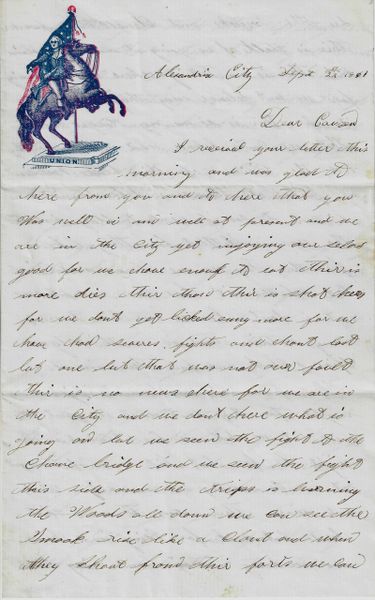 UNION
Alexandria City Sept 22 1861
Dear Cousin
I received your letter this
morning and was glad to
here from you and to here that you
was well i am well at present and we
are in the City yet injoying our selvs
good for we have enuf to eat thir is
more dies thir than thir is shot hear
for we dont get licked enny more for we
have had severe fights and haint lost
but one but that was not our fault
thir is no news here for we are in
the City and we dont here what is
going on but we seen the fight to the
Chane bridge and we seen the fight
this side and the trups is burning
the Woods all down we can see the
Smock rise like a Cloud and when
they Shoot from thir forts we can